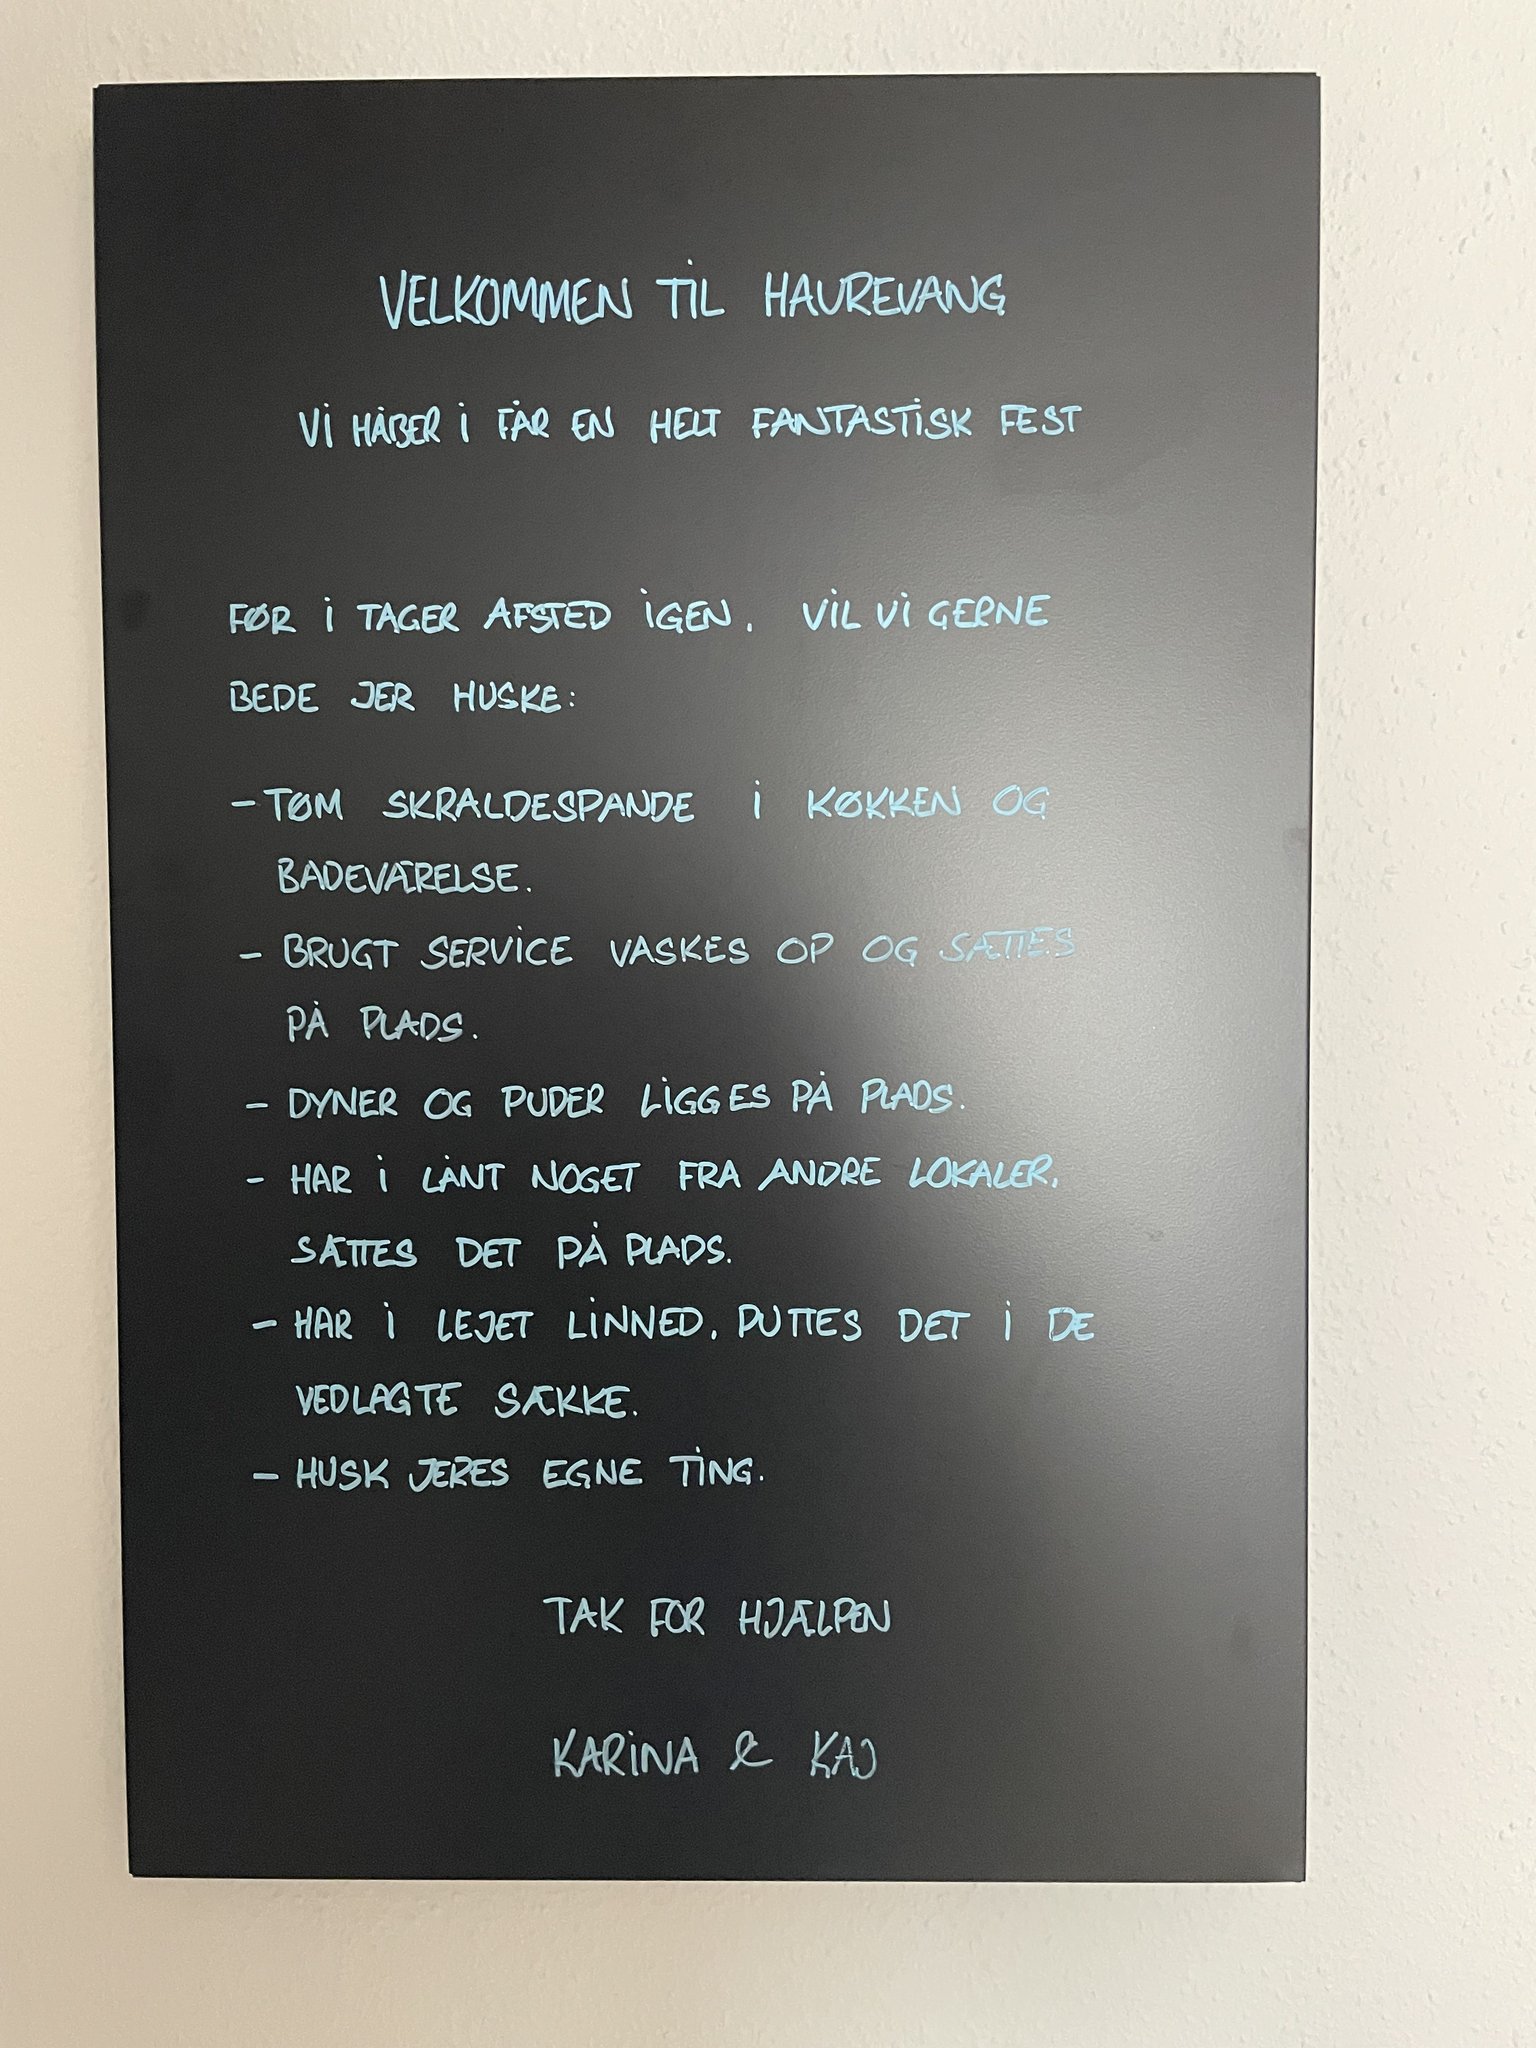 VELKOMMEN TIL HAUREVANG
VI HÅBER I FÅR EN HELT FANTASTISK FEST
FØR I TAGER AFSTED IGEN, VIL VI GERNE
BEDE JER HUSKE:
- TØM SKRALDESPANDE I KØKKEN OG
BADEVÆRELSE.
- BRUGT SERVICE VASKES OP OG SÆTTES
PÅ PLADS.
- DYNER OG PUDER LIGGES PÅ PLADS.
- HAR I LÅNT NOGET FRA ANDRE LOKALER,
SÆTTES DET PÅ PLADS.
- HAR I LEJET LINNED, PUTTES DET I DE
VEDLAGTE SÆKKE.
- HUSK JERES EGNE TING.
TAK FOR HJÆLPEN
KARINA & KAJ